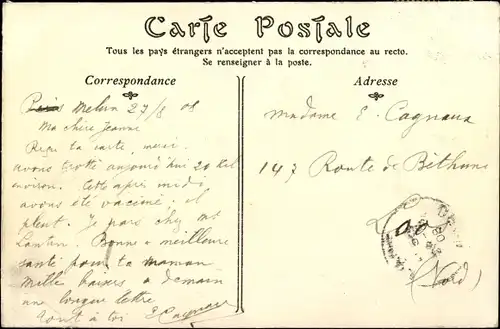 Carte Postale
Tous les pays étrangers n'acceptent pas la correspondance au recto.
Se renseigner à la poste.
Correspondance
Melun 27/8 08
Ma chère Jeanne
Reçu ta carte, merci.
avons trotté aujourd'hui 20 kil
environ. Cette après midi
avons été vacciné, il
pleut. Je pars chez
Bonne & meilleure
santé pour ta maman
Mille baisers à demain
une longue lettre
tout à toi E Cagnaux
Adresse
Madame E. Cagnaux
147 Route de Béthune
(Nord)